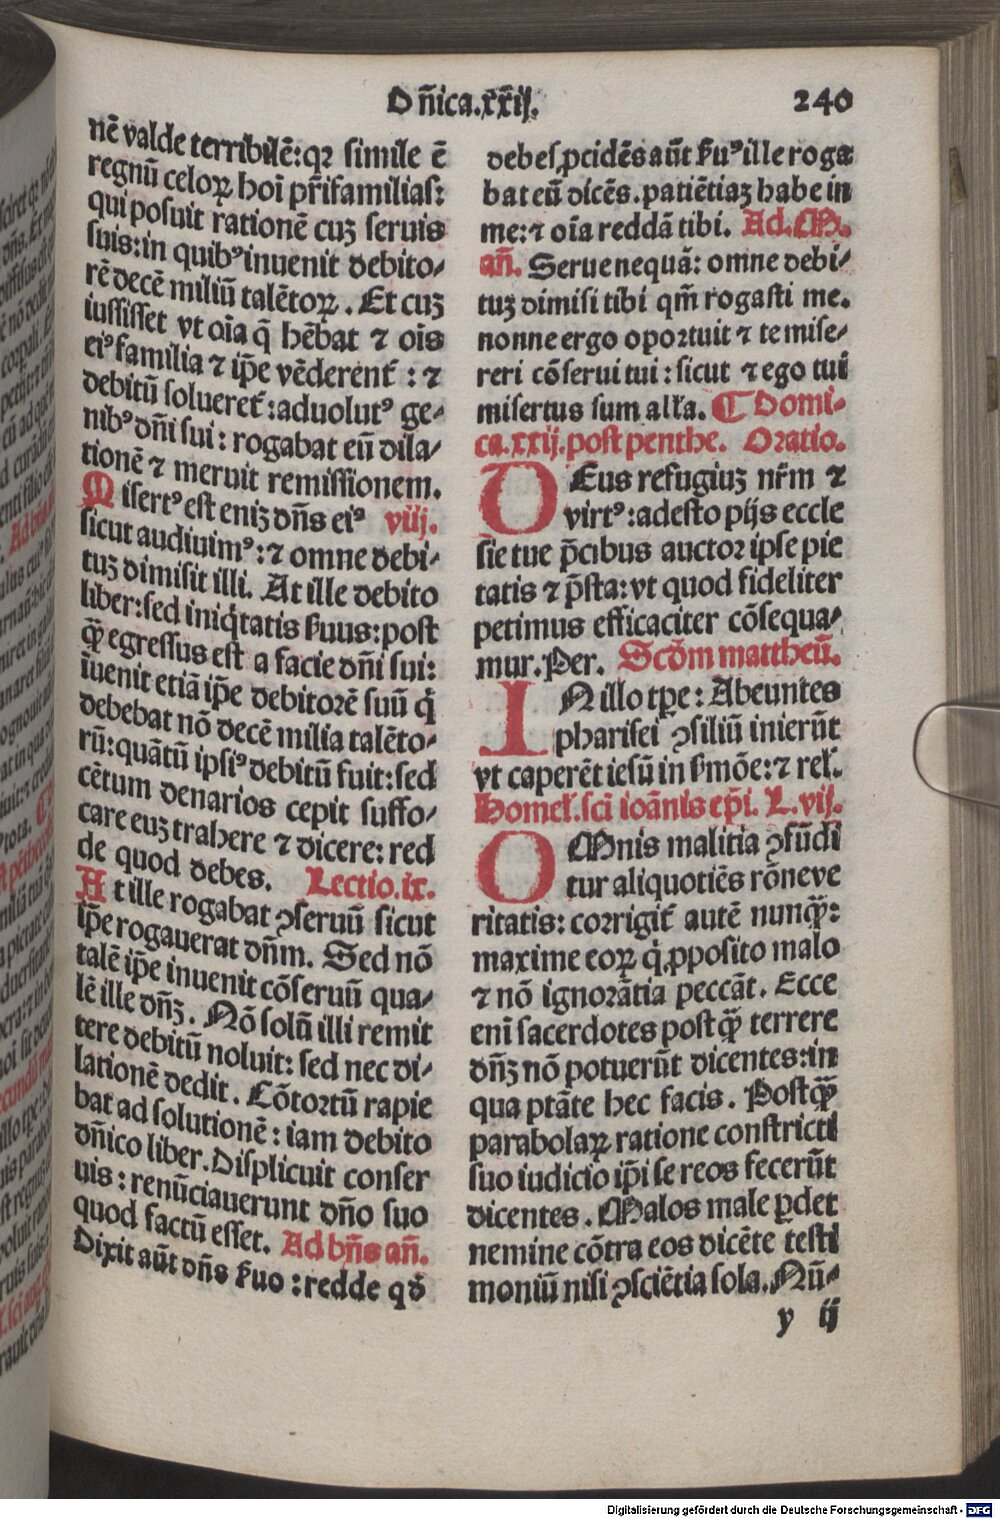 Dñica.xxij. 240
nē valde terribilē:qꝛ simile ē
regnū celoꝝ hoī pr̄ifamilias:
qui posuit rationē cuꝫ seruis
suis:in quibꝰ inuenit debito⸗
rē decē miliū talētoꝝ. Et cuꝫ
iussisset vt oīa q̄ hēbat ⁊ oīs
eiꝰ familia ⁊ ip̄e vēderent᷑ : ⁊
debitū solueret᷑:aduolutꝰ ge⸗
nibꝰ dñi sui: rogabat eū dila⸗
tionē ⁊ meruit remissionem.
Misertꝰ est eniꝫ dñs eiꝰ viij.
sicut audiuimꝰ:⁊ omne debi⸗
tuꝫ dimisit illi. At ille debito
liber:sed iniq̇tatis ẜuus:post
qꝫ̄ egressus est a facie dñi sui:
īuenit etiā ip̄e debitorē suū q̇
debebat nō decē milia talēto⸗
rū:quātū ipsiꝰ debitū fuit:sed
cētum denarios cepit suffo⸗
care euꝫ trahere ⁊ dicere: red
de quod debes. Lectio.ix.
At ille rogabat ꝯseruū sicut
ip̄e rogauerat dñm. Sed nō
talē ip̄e inuenit cōseruū qua⸗
lē ille dñꝫ. Nō solū illi remit
tere debitū noluit: sed nec di⸗
lationē dedit. Cōtortū rapie
bat ad solutionē: iam debito
dñico liber. Displicuit conser
uis: renūciauerunt dño suo
quod factū esset. Ad bñs añ.
Dixit aūt dñs ẜuo:redde qđ
debes ꝓcidēs aūt ẜuꝰ ille roga
bat eū dicēs.patiētiaꝫ habe in
me:⁊ oīa reddā tibi. Ad.M.
añ. Serue nequā: omne debi⸗
tuꝫ dimisi tibi qm̄ rogasti me.
nonne ergo oportuit ⁊ te mise⸗
reri cōserui tui: sicut ⁊ ego tui
misertus sum alła. ¶ Domi⸗
ca.xxij.post penthe. Oratio.
DEus refugiuꝫ nr̄m ⁊
virtꝰ:adesto pijs eccle
sie tue p̄cibus auctor ipse pie
tatis ⁊ p̄sta:vt quod fideliter
petimus efficaciter cōsequa⸗
mur.Per. Scđm mattheū.
IN illo tꝑe: Abeuntes
pharisei ꝯsiliū inierūt
vt caperēt iesū in ẜmōe:⁊ rel̃.
Homel̃.sci ioānis ep̄i. L.vij.
OMnis malitia ꝯfūdi
tur aliquotiēs rōne ve
ritatis: corrigit᷑ autē nunqꝫ̄:
maxime eoꝝ q̇ ꝓposito malo
⁊ nō ignorātia peccāt. Ecce
enī sacerdotes postqꝫ̄ terrere
dñꝫ nō potuerūt dicentes:in
qua ptāte hec facis. Postqꝫ̄
parabolaꝝ ratione constricti
suo iudicio ip̄i se reos fecerūt
dicentes. Malos male ꝑdet
nemine cōtra eos dicēte testi
moniū nisi ꝯsciētia sola. Nū⸗
y ij
Digitalisierung gefördert durch die Deutsche Forschungsgemeinschaft - DFG